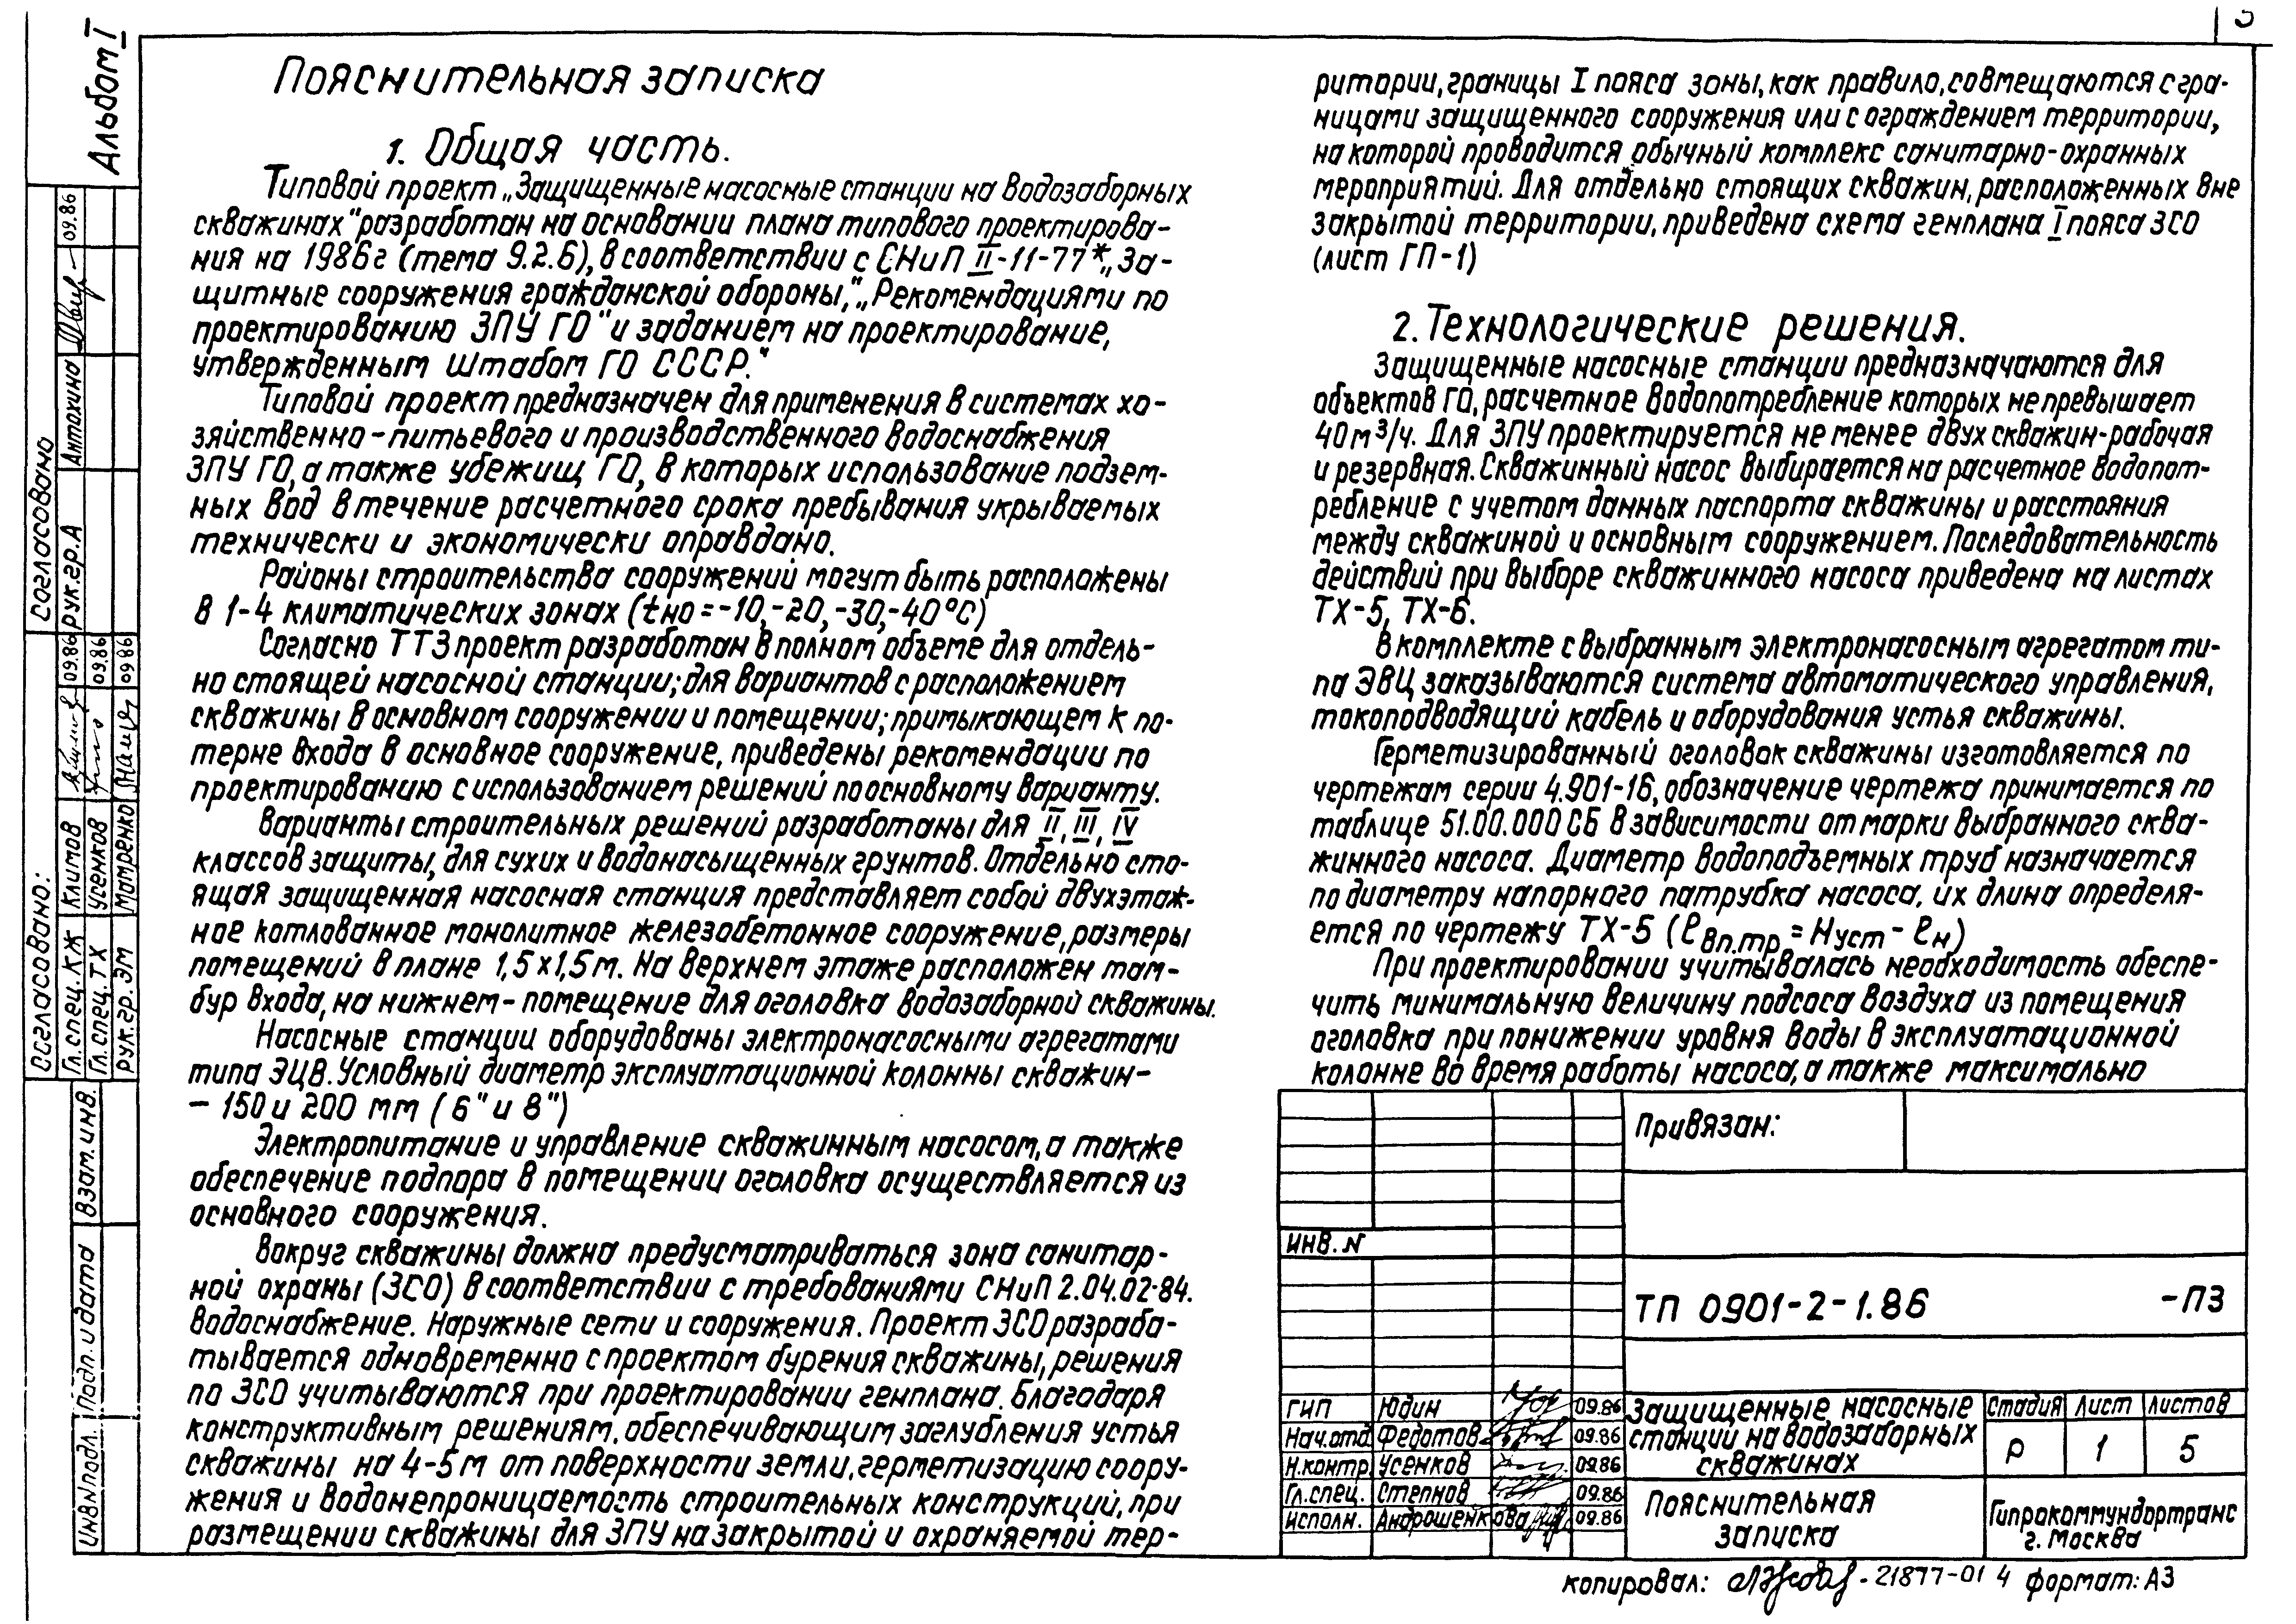 Альбом I
Пояснительная записка
1. Общая часть.
Типовой проект „Защищенные насосные станции на водозаборных
скважинах" разработан на основании плана типового проектирова-
ния на 1986г (тема 9.2.6), в соответствии с СНиП II-11-77* „За-
щитные сооружения гражданской обороны," „Рекомендациями по
проектированию ЗПУ ГО" и заданием на проектирование,
утвержденным Штабом ГО СССР."
Типовой проект предназначен для применения в системах хо-
зяйственно-питьевого и производственного водоснабжения
ЗПУ ГО, а также убежищ ГО, в которых использование подзем-
ных вод в течение расчетного срока пребывания укрываемых
технически и экономически оправдано.
Районы строительства сооружений могут быть расположены
в 1-4 климатических зонах (tно = -10,-20,-30,-40°С)
Согласно ТТЗ проект разработан в полном объеме для отдель-
но стоящей насосной станции; для вариантов с расположением
скважины в основном сооружении и помещении; примыкающем к по-
терне входа в основное сооружение, приведены рекомендации по
проектированию с использованием решений по основному варианту.
Варианты строительных решений разработаны для II, III, IV
классов защиты, для сухих и водонасыщенных грунтов. Отдельно сто-
ящая защищенная насосная станция представляет собой двухэтаж-
ное котлованное монолитное железобетонное сооружение, размеры
помещений в плане 1,5х1,5м. На верхнем этаже расположен там-
бур входа, на нижнем - помещение для оголовка водозаборной скважины.
Насосные станции оборудованы электронасосными агрегатами
типа ЭЦВ. Условный диаметр эксплуатационной колонны скважин-
- 150 и 200 мм (6" и 8")
Электропитание и управление скважинным насосом, а также
обеспечение подпора в помещении оголовка осуществляется из
основного сооружения.
Вокруг скважины должна предусматриваться зона санитар-
ной охраны (ЗСО) в соответствии с требованиями СНиП 2.04.02-84.
Водоснабжение. Наружные сети и сооружения. Проект ЗСО разраба-
тывается одновременно с проектом бурения скважины, решения
по ЗСО учитываются при проектировании генплана. Благодаря
конструктивным решениям, обеспечивающим заглубления устья
скважины на 4-5м от поверхности земли, герметизацию соору-
жения и водонепроницаемость строительных конструкций, при
размещении скважины для ЗПУ на закрытой и охраняемой тер-
ритории, границы I пояса зоны, как правило, совмещаются с гра-
ницами защищенного сооружения или с ограждением территории,
на которой проводится обычный комплекс санитарно-охранных
мероприятий. Для отдельно стоящих скважин, расположенных вне
закрытой территории, приведена схема генплана I пояса ЗСО
(лист ГП-1)
2. Технологические решения.
Защищенные насосные станции предназначаются для
объектов ГО, расчетное водопотребление которых не превышает
40 м³/ч. Для ЗПУ проектируется не менее двух скважин-рабочая
и резервная. Скважинный насос выбирается на расчетное водопот-
ребление с учетом данных паспорта скважины и расстояния
между скважиной и основным сооружением. Последовательность
действий при выборе скважинного насоса приведена на листах
ТХ-5, ТХ-6.
В комплекте с выбранным электронасосным агрегатом ти-
па ЭВЦ заказываются система автоматического управления,
токоподводящий кабель и оборудования устья скважины.
Герметизированный оголовок скважины изготовляется по
чертежам серии 4.901-16, обозначение чертежа принимается по
таблице 51.00.000 СБ в зависимости от марки выбранного сква-
жинного насоса. Диаметр водоподъемных труб назначается
по диаметру напорного патрубка насоса, их длина определя-
ется по чертежу ТХ-5 (ℓвп.тр = Нуст - ℓн)
При проектировании учитывалась необходимость обеспе-
чить минимальную величину подсоса воздуха из помещения
оголовка при понижении уровня воды в эксплуатационной
колонне во время работы насоса, а также максимально
Согласовано
рук.гр.А Антохина 09.86
Согласовано:
Гл.спец.КЖ Климов 09.86
Гл.спец.ТХ Усенков 09.86
рук.гр.ЭМ Мамренко 09.86
Взам.инв.
Подп. и дата
Инв№подл.
Привязан:
инв. N
ТП 0901-2-1.86 -ПЗ
ГИП Юдин 09.86
Нач.отд. Федотов 09.86
Н.контр. Усенков 09.86
Гл.спец. Степнов 09.86
исполн. Андрошенкова 09.86
Защищенные насосные
станции на водозаборных
скважинах
Стадия Лист Листов
Р 1 5
Пояснительная
записка
Гипрокоммундортранс
г. Москва
копировал: 21877-01 4 формат: А3